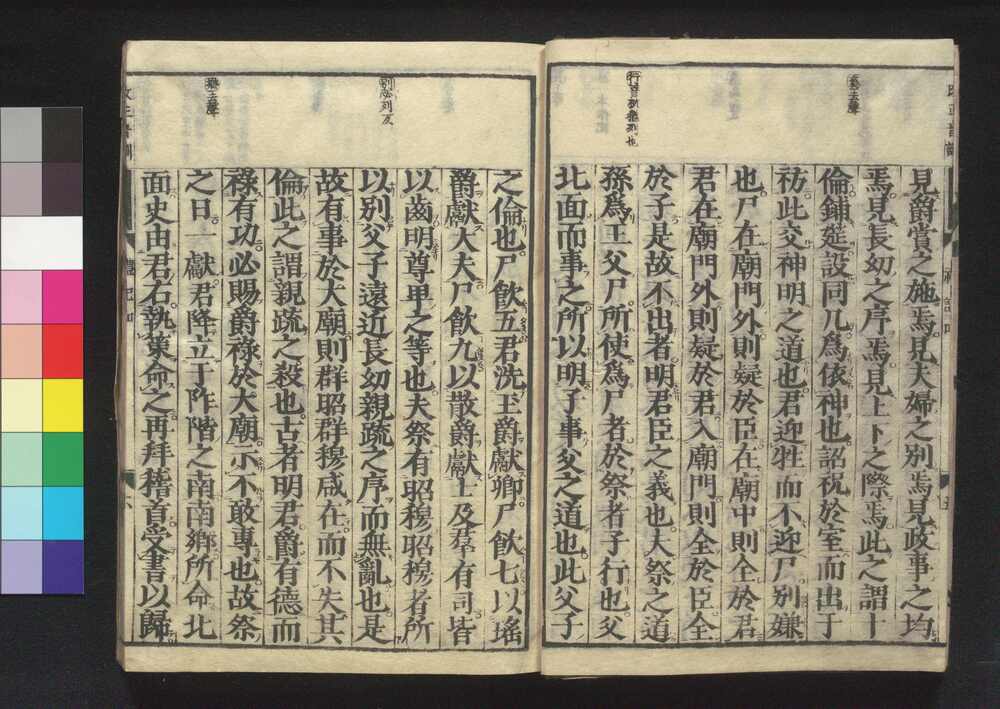 見爵賞之施焉見夫婦之別焉見政事之均
焉見長幼之序焉見上下之際焉此之謂十
倫鋪筵設同几爲依神也詔祝於室而出于
祊此交神明之道也君迎牲而不迎尸別嫌
也尸在廟門外則疑於臣在廟中則全於君
君在廟門外則疑於君入廟門則全於臣全
於子是故不出者明君臣之義也夫祭之道
孫爲王父尸所使爲尸者於祭者子行也父
北面而事之所以明子事父之道也此父子
之倫也尸飮五君洗玉爵獻卿尸飮七以瑤
爵獻大夫尸飮九以散爵獻士及羣有司皆
以齒明尊卑之等也夫祭有昭穆昭穆者所
以別父子遠近長幼親疏之序而無亂也是
故有事於大廟則群昭群穆咸在而不失其
倫此之謂親疏之殺也古者明君爵有德而
祿有功必賜爵祿於大廟示不敢專也故祭
之日一獻君降立于阼階之南南鄉所命北
面史由君右執策命之再拜稽首受書以歸